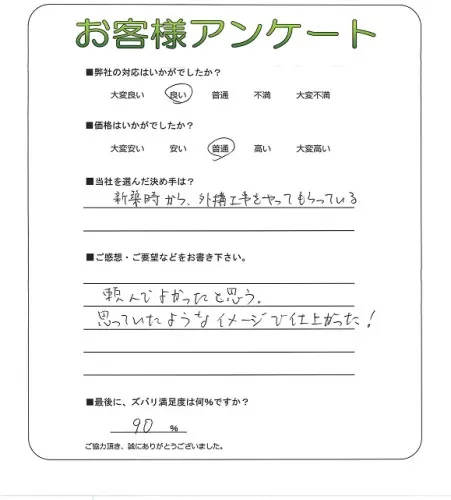 お客様アンケート
■弊社の対応はいかがでしたか？
大変良い 良い 普通 不満 大変不満
■価格はいかがでしたか？
大変安い 安い 普通 高い 大変高い
■当社を選んだ決め手は？
新築時から、外構工事をやってもらっている
■ご感想・ご要望などをお書き下さい。
頼んでよかったと思う。
思っていたようなイメージで仕上がった！
■最後に、ズバリ満足度は何％ですか？
90 ％
ご協力頂き、誠にありがとうございました。